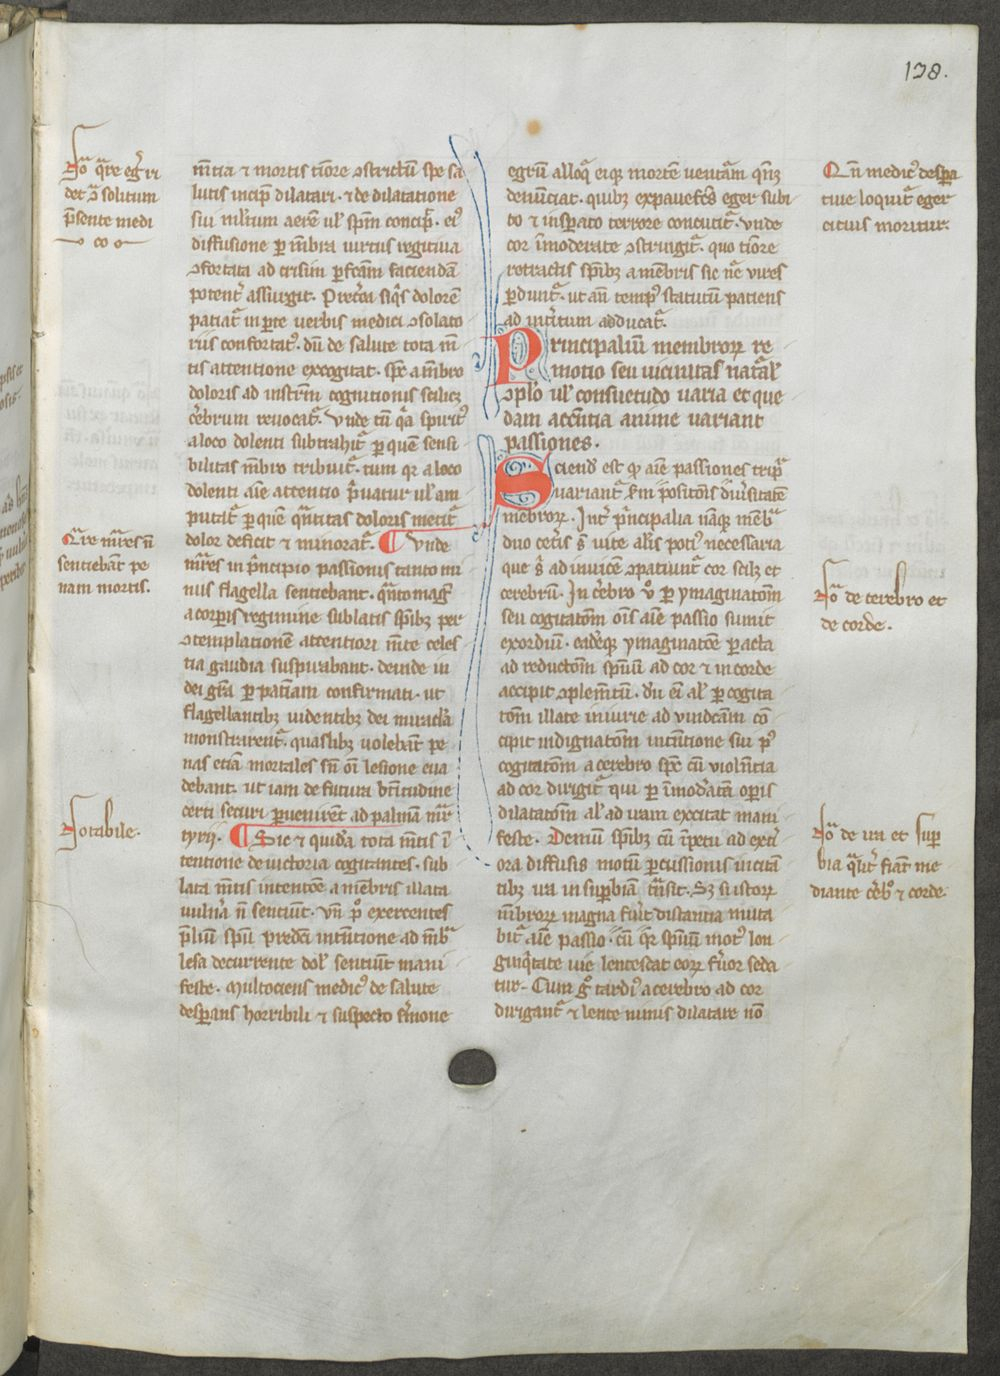 138.
No qre egri
det 9 solitum
psente medi
co
mtia ⁊ mortis tiore ostrictu spe sa
lutis incip dilatari · ⁊ de dilatatione
siu aerem ul' spm concip ·
diffusione p mbra uirtus regitiua
ꝯfortata ad crisim pfcam facienda
potent assurgit · Pretea siqs dolore
patiat in pte uerbis medici ꝯsolato
riis confortat · du de salute tota m
tis attentione excogitat · a mbro
doloris ad instrm cognitionis scilicz
crebrum reuocat · Vnde tu qa spirit
a loco dolenti subtrahit p que sensi
bilitas mbro tribuit · tum qr a loco
dolenti aie attentio pruatur ul' am
putat p que qntitas doloris metit
dolor deficit ⁊ minorat · ¶ Vnde
mres in pncipio passionis tanto mi
nus flagella sentiebant · qnto mag
a corpis regimine sublatis spibz per
ꝯtemplatione attentiori mte celes
tia gaudia suspirabant · deinde in
dei gra p patiam confirmati · ut
flagellantibz uidentibz dei miracla
monstrarent · quaslibz uolebat pe
nas etiam mortales sn oi lesione eua
debant · ut iam de futura btitudine
certi securi pueniret ad palma mr
tyrij · ¶ Sic ⁊ quida tota mtis i
tentione de uictoria cogitantes · sub
lata mtis intentoe a mebris illata
uulna n sentiut · Vn po exercentes
pliu spu predca intentione ad mbra
lesa decurrente dol sentiut mani
feste · Multociens medic de salute
despans horribili ⁊ suspecto smone
Qre mres n
sentiebat pe
nam mortis ·
Notabile ·
egru alloq eiq morte uentam qnz
denuciat · quibz expauefcs eger subi
to ⁊ insperato terrore concutit · Vnde
cor imoderate ꝯstringit · quo tiore
retractis spibz a mebris sic nc uires
pdunt · ut an temp statutu patiens
ad intitum adducat ·
Principaliu membrorꝝ re
motio seu uicinitas natal'
ꝯplo ul' consuetudo uaria et que
dam accntia anime uariant
passiones ·
Sciend est qꝫ aie passiones tripl
uariant scdm positois diusitate
mebrorꝝ · Int pncipalia naqꝫ meba
duo cetis s uite aliis poti necessaria
que s ad inuice ꝯpatiunt cor scilz et
cerebru · In crebro uo p ymaginatom
seu cogitatom ois aie passio sumit
exordiu · eadeqꝫ ymaginatoe pacta
ad reductom spuu ad cor ⁊ in corde
accipit ꝯplemtu · du ei al' p cogita
tom illate iniurie ad uindcam co
cipit indignatom intentione siu p
cogitatom a cerebro spe cu uiolntia
ad cor dirigit qui p imodata opis
dilatatom al' ad iram excitat mani
feste · Demu spibz cu ipetu ad exti
ora diffusis motu pcussionis incitan
tibz ira in supbiam tnsit · Sz si istorꝝ
mbrorꝝ magna fuit distantia muta
bit aie passio · cu qr spuu mot lon
ginqtate uie lentescat eorꝝ feruor seda
tur · Cum go tardi a cerebro ad cor
dirigant ⁊ lente nimis dilatare no
Qn medic despa
tiue loquit eger
citius moritur ·
No de cerebro et
de corde ·
No de ira et sup
bia qlit fiant me
diante crebo ⁊ corde ·